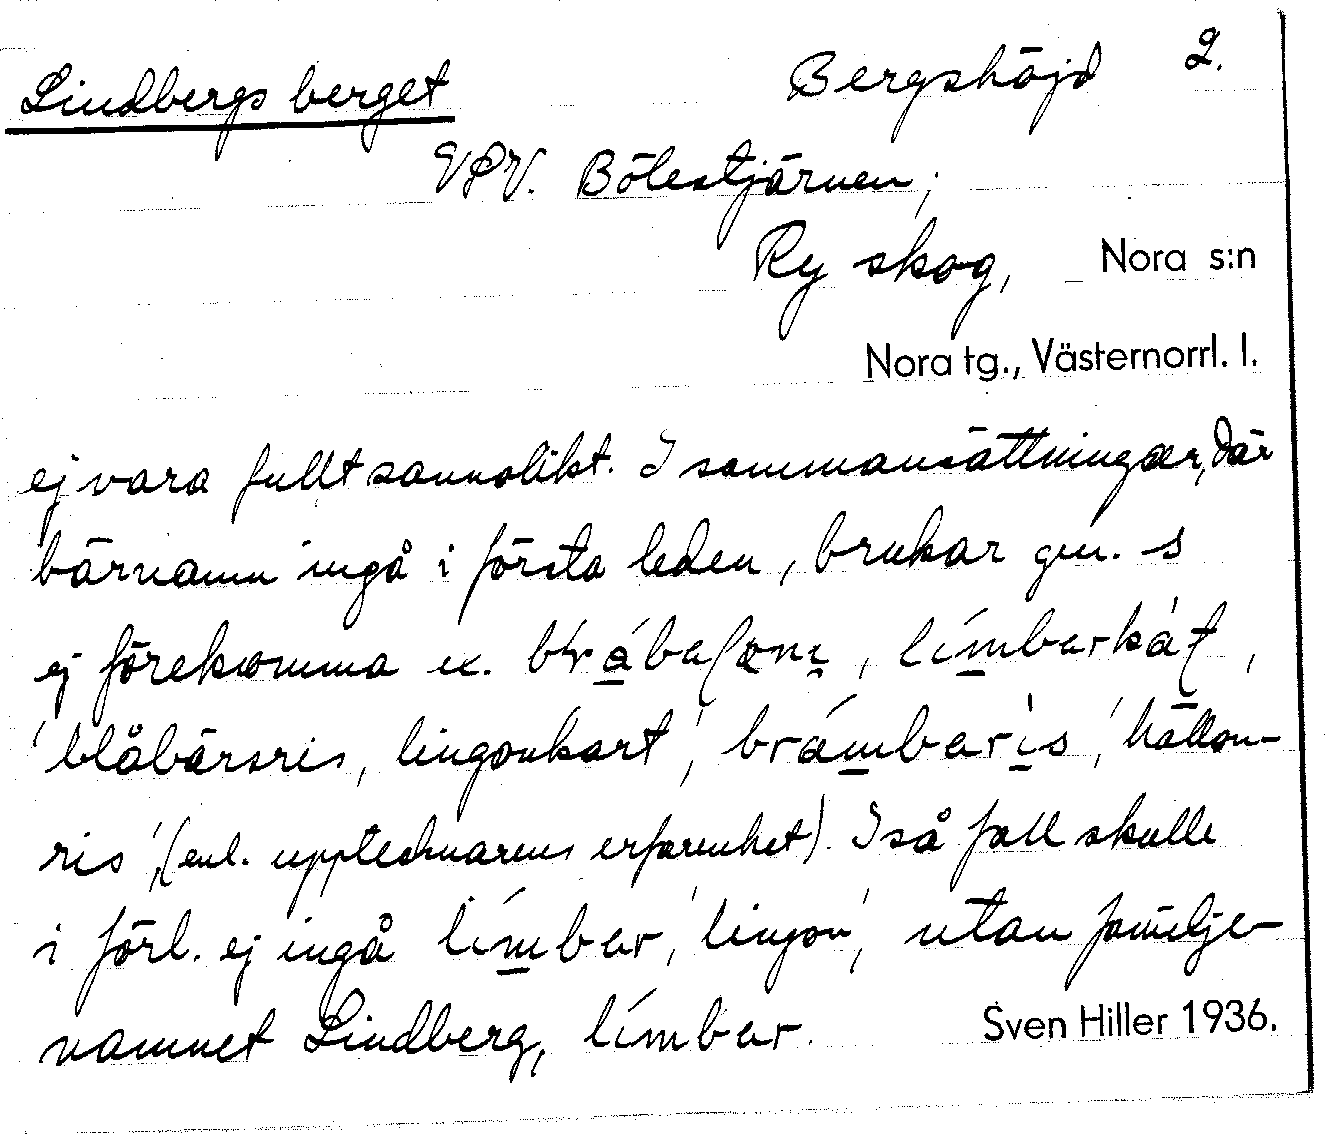 Lindbergs berget Bergshöjd 2.
VSV. Bölestjärnen;
Ry skog, Nora s:n
Nora tg., Västernorrl. l.
ej vara fullt sannolikt. I sammansättningar, där
bärnamn ingå i första leden, brukar gen. s
ej förekomma ex. límbarkàt,
'blåbärsris, lingonkart', brámbarìs, 'hallon-
ris', (enl. upptecknarens erfarenhet). I så fall skulle
i förl. ej ingå límbar, 'lingon', utan familje-
namnet Lindberg, límbar. Sven Hiller 1936.